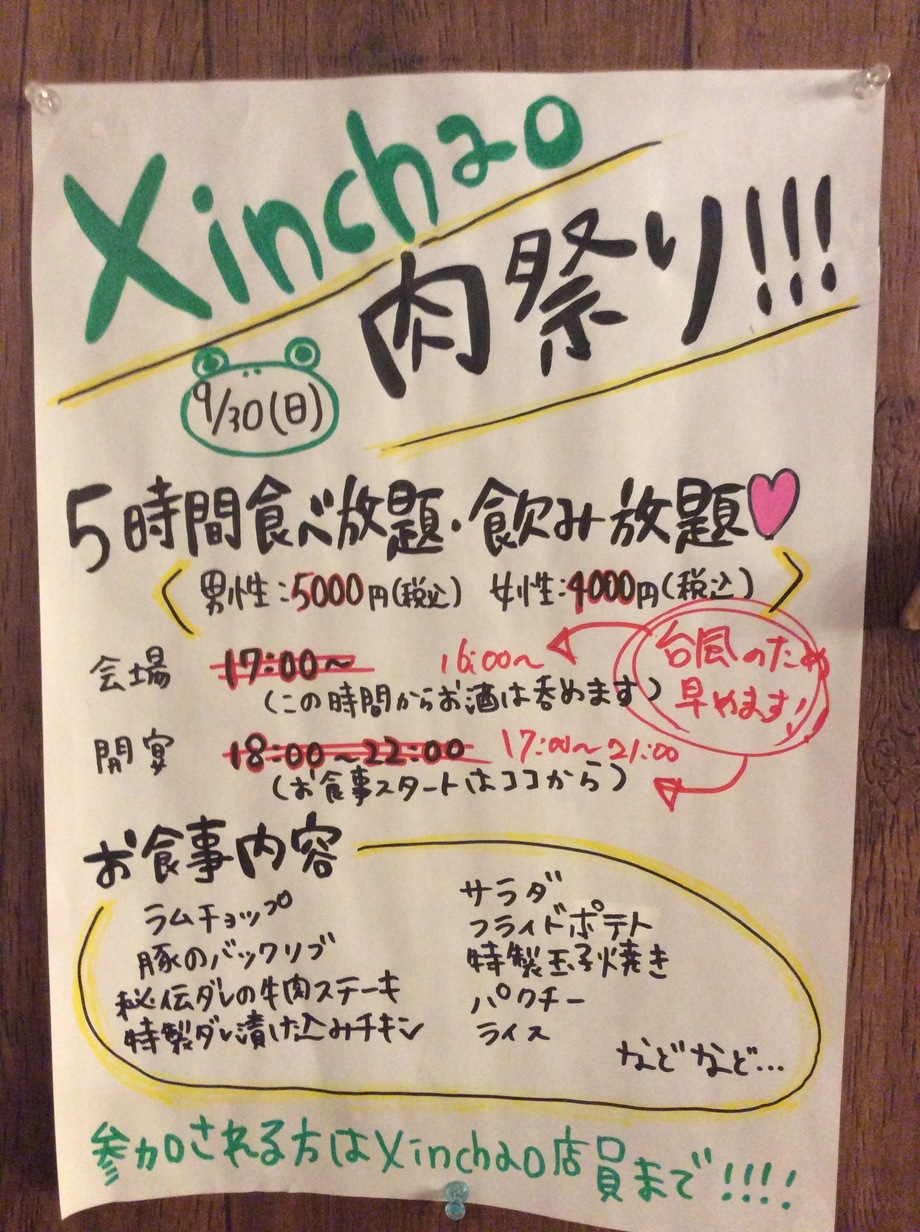 Xinchao
肉祭り!!!
9/30(日)
5時間食べ放題・飲み放題
男性:5000円(税込) 女性:4000円(税込)
会場 17:00〜 16:00〜
(この時間からお酒は呑めます)
台風のため
早めます!
開宴 18:00〜22:00 17:00〜21:00
(お食事スタートはココから)
お食事内容
ラムチョップ
豚のバックリブ
秘伝ダレの牛肉ステーキ
特製ダレ漬け込みチキン
サラダ
フライドポテト
特製玉子焼き
パクチー
ライス
などなど...
参加される方はXinchao店員まで!!!!